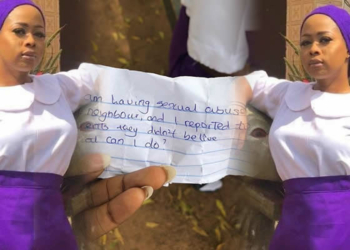 am having sexual abuse
neighbour, and I reported t
they didn't belive
can I do?